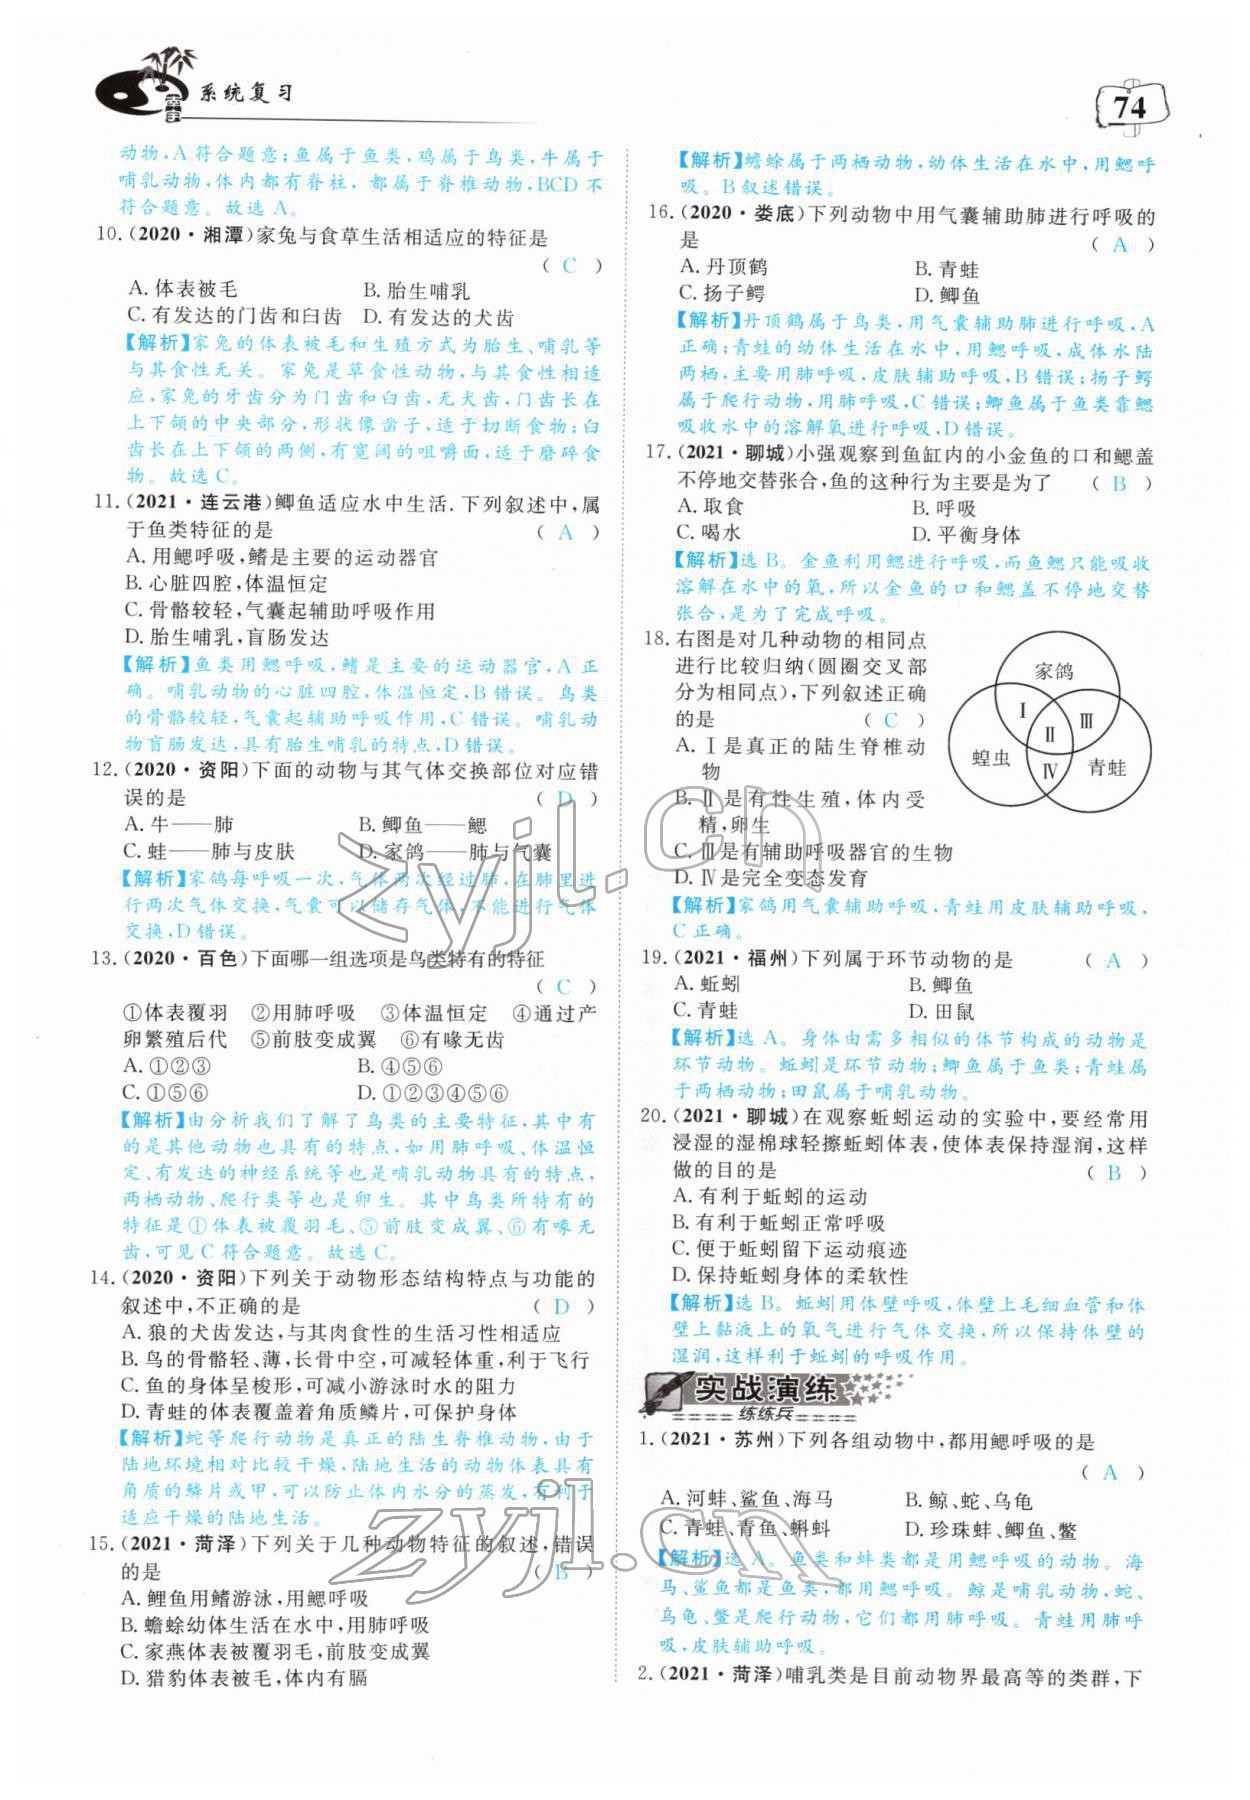 系统复习
74
动物,A符合题意;鱼属于鱼类,鸡属于鸟类,牛属于
哺乳动物,体内都有脊柱,都属于脊椎动物,BCD不
符合题意。故选A。
10.(2020·湘潭)家兔与食草生活相适应的特征是
( C )
A.体表被毛 B.胎生哺乳
C.有发达的门齿和臼齿 D.有发达的犬齿
【解析】家兔的体表被毛和生殖方式为胎生、哺乳等
与其食性无关。家兔是草食性动物,与其食性相适
应,家兔的牙齿分为门齿和臼齿,无犬齿;门齿长在
上下颌的中央部分,形状像凿子,适于切断食物;臼
齿长在上下颌的两侧,有宽阔的咀嚼面,适于磨碎食
物。故选C。
11.(2021·连云港)鲫鱼适应水中生活.下列叙述中,属
于鱼类特征的是 ( A )
A.用鳃呼吸,鳍是主要的运动器官
B.心脏四腔,体温恒定
C.骨骼较轻,气囊起辅助呼吸作用
D.胎生哺乳,盲肠发达
【解析】鱼类用鳃呼吸,鳍是主要的运动器官,A正
确。哺乳动物的心脏四腔,体温恒定,B错误。鸟类
的骨骼较轻,气囊起辅助呼吸作用,C错误。哺乳动
物盲肠发达,具有胎生哺乳的特点,D错误。
12.(2020·资阳)下面的动物与其气体交换部位对应错
误的是 ( D )
A.牛——肺 B.鲫鱼——鳃
C.蛙——肺与皮肤 D.家鸽——肺与气囊
【解析】家鸽每呼吸一次,气体两次经过肺,在肺里进
行两次气体交换,气囊可以储存气体,不能进行气体
交换,D错误。
13.(2020·百色)下面哪一组选项是鸟类特有的特征
( C )
①体表覆羽 ②用肺呼吸 ③体温恒定 ④通过产
卵繁殖后代 ⑤前肢变成翼 ⑥有喙无齿
A.①②③ B.④⑤⑥
C.①⑤⑥ D.①②③④⑤⑥
【解析】由分析我们了解了鸟类的主要特征,其中有
的是其他动物也具有的特点,如用肺呼吸、体温恒
定、有发达的神经系统等也是哺乳动物具有的特点,
两栖动物、爬行类等也是卵生。其中鸟类所特有的
特征是①体表被覆羽毛、⑤前肢变成翼、⑥有喙无
齿,可见C符合题意。故选C。
14.(2020·资阳)下列关于动物形态结构特点与功能的
叙述中,不正确的是 ( D )
A.狼的犬齿发达,与其肉食性的生活习性相适应
B.鸟的骨骼轻、薄,长骨中空,可减轻体重,利于飞行
C.鱼的身体呈梭形,可减小游泳时水的阻力
D.青蛙的体表覆盖着角质鳞片,可保护身体
【解析】蛇等爬行动物是真正的陆生脊椎动物,由于
陆地环境相对比较干燥,陆地生活的动物体表具有
角质的鳞片或甲,可以防止体内水分的蒸发,有利于
适应干燥的陆地生活。
15.(2021·菏泽)下列关于几种动物特征的叙述,错误
的是 ( B )
A.鲤鱼用鳍游泳,用鳃呼吸
B.蟾蜍幼体生活在水中,用肺呼吸
C.家燕体表被覆羽毛,前肢变成翼
D.猎豹体表被毛,体内有膈
【解析】蟾蜍属于两栖动物,幼体生活在水中,用鳃呼
吸。B叙述错误。
16.(2020·娄底)下列动物中用气囊辅助肺进行呼吸的
是 ( A )
A.丹顶鹤 B.青蛙
C.扬子鳄 D.鲫鱼
【解析】丹顶鹤属于鸟类,用气囊辅助肺进行呼吸,A
正确;青蛙的幼体生活在水中,用鳃呼吸,成体水陆
两栖,主要用肺呼吸,皮肤辅助呼吸,B错误;扬子鳄
属于爬行动物,用肺呼吸,C错误;鲫鱼属于鱼类靠鳃
吸收水中的溶解氧进行呼吸,D错误。
17.(2021·聊城)小强观察到鱼缸内的小金鱼的口和鳃盖
不停地交替张合,鱼的这种行为主要是为了 ( B )
A.取食 B.呼吸
C.喝水 D.平衡身体
【解析】选B。金鱼利用鳃进行呼吸,而鱼鳃只能吸收
溶解在水中的氧,所以金鱼的口和鳃盖不停地交替
张合,是为了完成呼吸。
18.右图是对几种动物的相同点
进行比较归纳(圆圈交叉部
分为相同点),下列叙述正确
的是 ( C )
A.Ⅰ是真正的陆生脊椎动
物
B.Ⅱ是有性生殖,体内受
精,卵生
C.Ⅲ是有辅助呼吸器官的生物
D.Ⅳ是完全变态发育
家鸽
Ⅰ Ⅱ Ⅲ
蝗虫 Ⅳ 青蛙
【解析】家鸽用气囊辅助呼吸,青蛙用皮肤辅助呼吸,
C正确。
19.(2021·福州)下列属于环节动物的是 ( A )
A.蚯蚓 B.鲫鱼
C.青蛙 D.田鼠
【解析】选A。身体由需多相似的体节构成的动物是
环节动物。蚯蚓是环节动物;鲫鱼属于鱼类;青蛙属
于两栖动物;田鼠属于哺乳动物。
20.(2021·聊城)在观察蚯蚓运动的实验中,要经常用
浸湿的湿棉球轻擦蚯蚓体表,使体表保持湿润,这样
做的目的是 ( B )
A.有利于蚯蚓的运动
B.有利于蚯蚓正常呼吸
C.便于蚯蚓留下运动痕迹
D.保持蚯蚓身体的柔软性
【解析】选B。蚯蚓用体壁呼吸,体壁上毛细血管和体
壁上黏液上的氧气进行气体交换,所以保持体壁的
湿润,这样利于蚯蚓的呼吸作用。
实战演练
练练兵
1.(2021·苏州)下列各组动物中,都用鳃呼吸的是
( A )
A.河蚌、鲨鱼、海马 B.鲸、蛇、乌龟
C.青蛙、青鱼、蝌蚪 D.珍珠蚌、鲫鱼、鳖
【解析】选A。鱼类和蚌类都是用鳃呼吸的动物。海
马、鲨鱼都是鱼类,都用鳃呼吸。鲸是哺乳动物,蛇、
乌龟、鳖是爬行动物,它们都用肺呼吸。青蛙用肺呼
吸,皮肤辅助呼吸。
2.(2021·菏泽)哺乳类是目前动物界最高等的类群,下
zyjl.cn
zyjl.cn